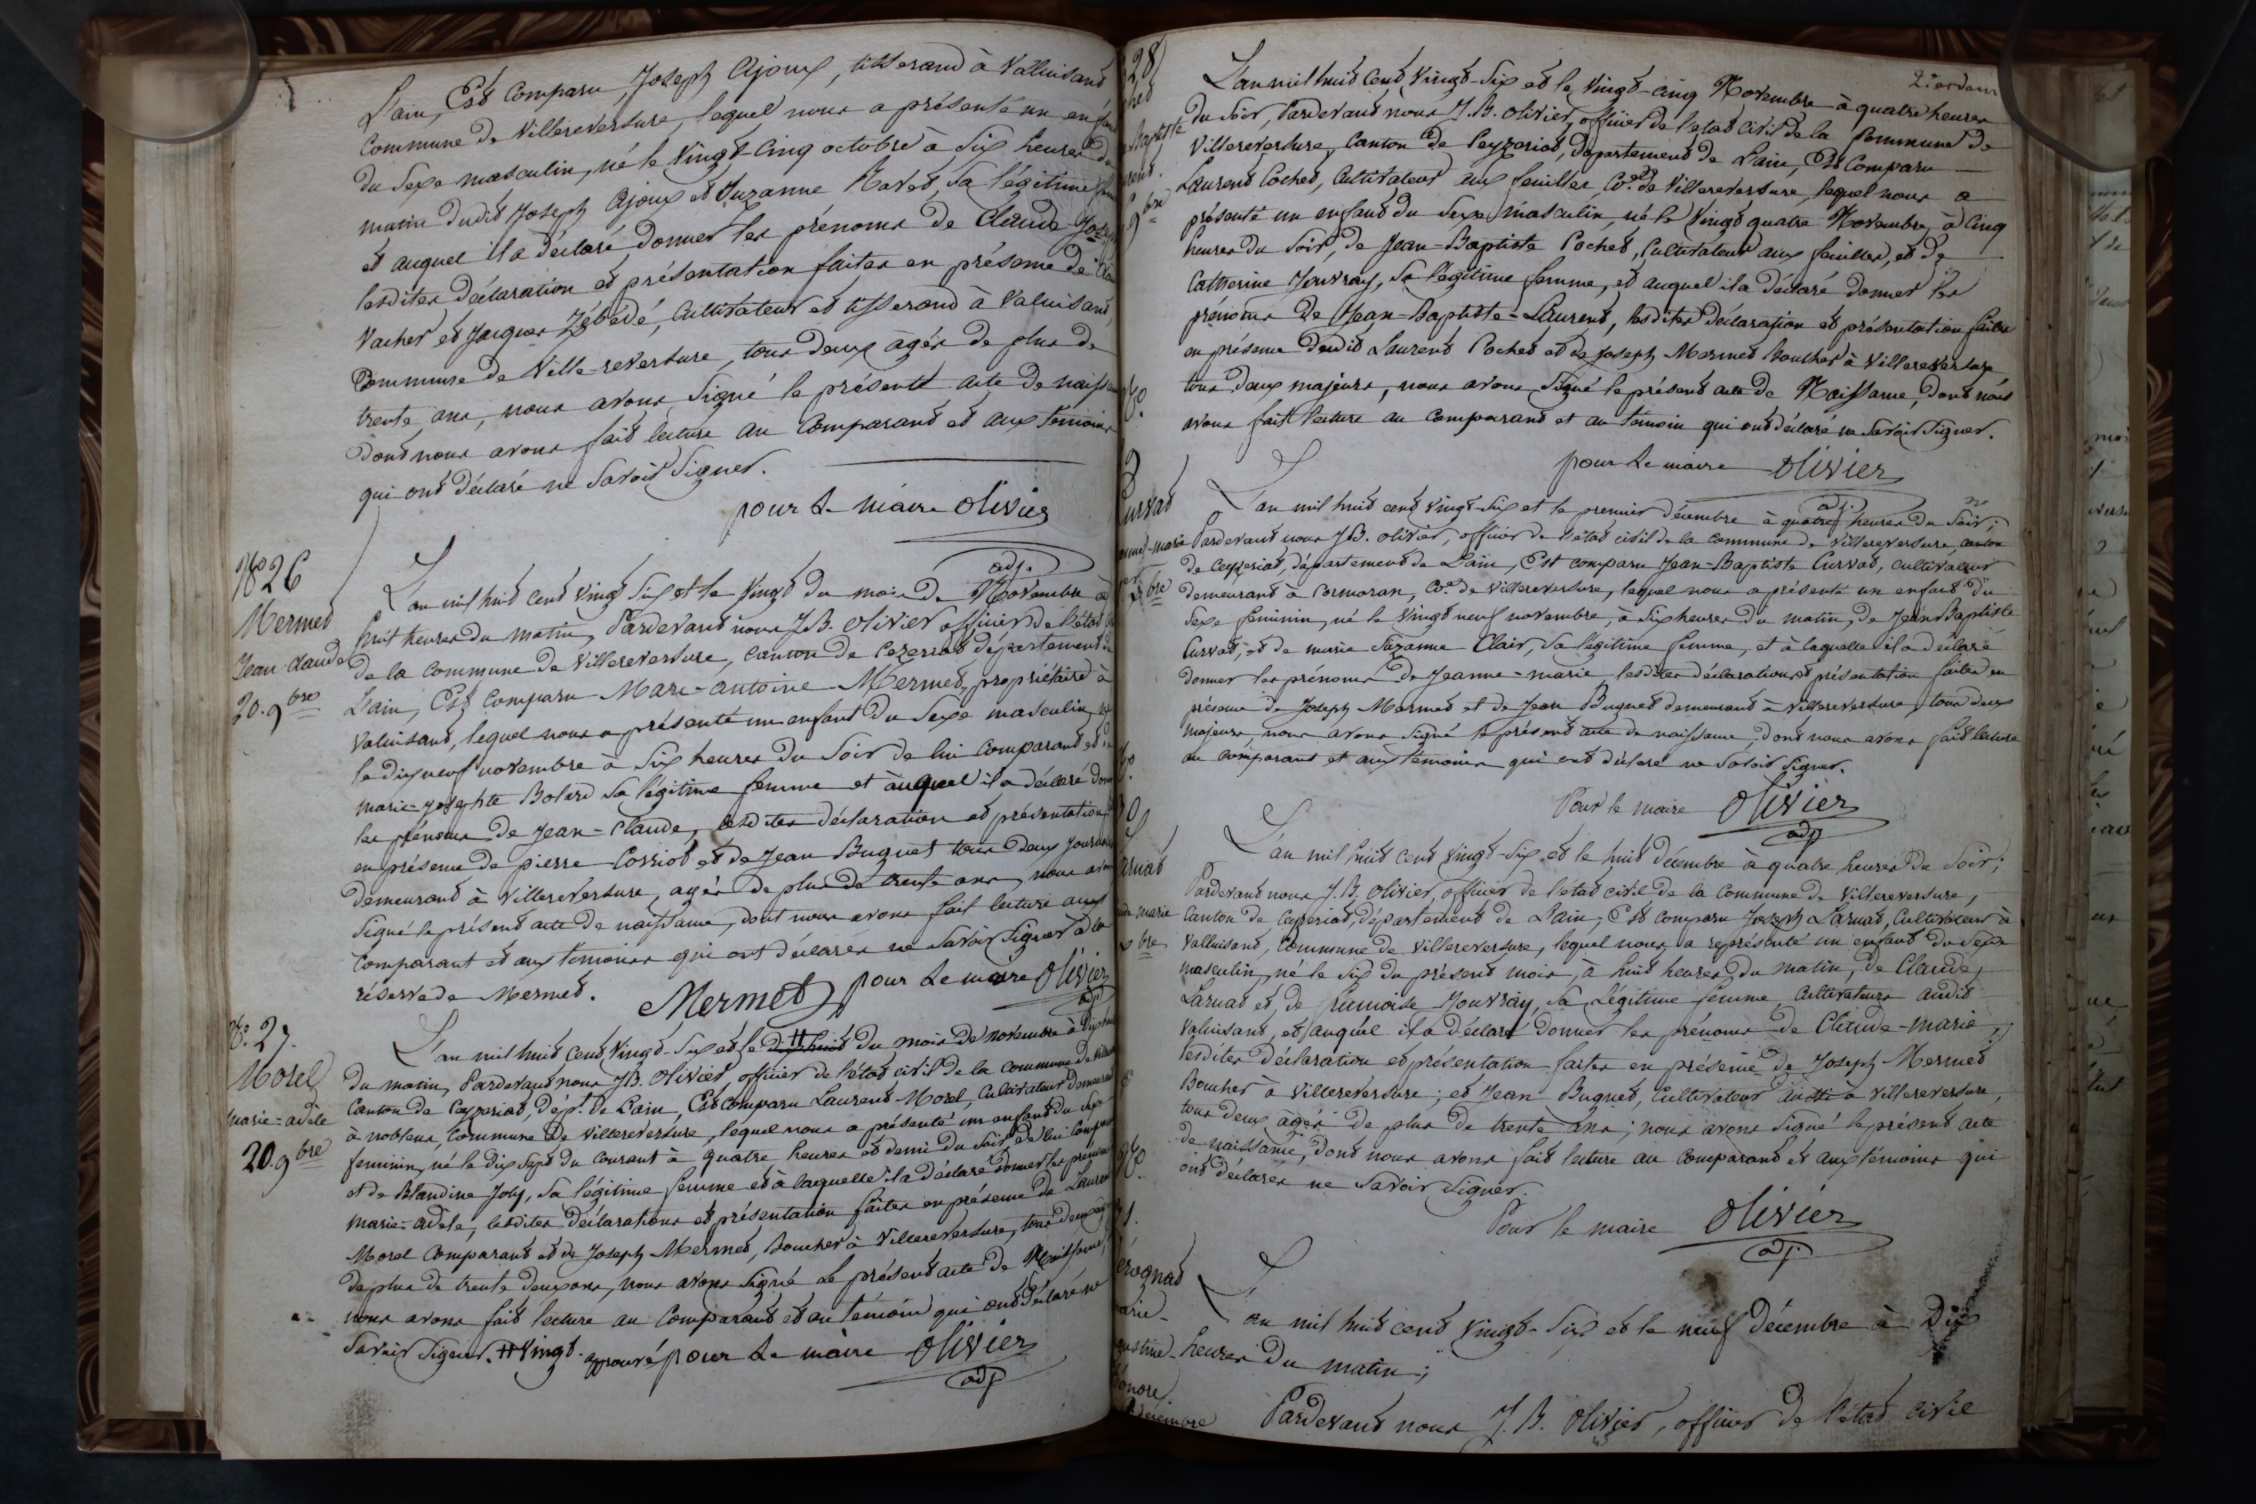 Lain, Est Comparu, Joseph Ajoux, tisserand à Valuisant
Commune de Villereversure, lequel nous a présenté un enfant
du Sexe masculin, né le Vingt-Cinq octobre à Six heures du
matin dudit Joseph Ajoux et Suzanne Ravet, Sa légitime
et auquel il a déclaré donner les prénoms de Claude Jos
lesdites déclaration et présentation faites en présence de
Vacher et Jacques Zébédé, Cultivateur et tisserand à Valuisant,
Commune de Ville-reversure, tous deux âgés de plus de
trente ans, nous avons Signé le présent acte de naiss
dont nous avons fait lecture au Comparant et aux témoins
qui ont déclaré ne Savoir Signer.
pour le maire Olivier
adj.
No 26
Mermet
Jean-Claude
20. 9bre
L'an mil huit cent vingt Six et le Vingt du mois de Novembre à
huit heures du matin, Pardevant nous J.B. Olivier officier de l'état
de la Commune de Villereversure, canton de Cezeriat département
Lain, Est Comparu Marc-antoine Mermet, propriétaire à
Valuisant, lequel nous a présenté un enfant du Sexe masculin,
le dix neuf novembre à Six heures du Soir de lui Comparant et
marie-josephte Bolard Sa légitime femme et auquel il a déclaré
les prénoms de Jean-Claude, lesdites déclaration et présentation
en présence de pierre Corriot et de Jean Buguet tous deux
demeurant à Villereversure, agés de plus de trente ans, nous
Signé le présent acte de naissance, dont nous avons fait lecture aux
Comparant et aux temoins qui ont déclarés ne Savoir Signer à la
réserve de Mermet. Mermet pour le maire Olivier
adj
No. 27.
Morel
marie-adèle
20. 9bre
L'an mil huit cent Vingt-Six et le dix huit # du mois de novembre à
du matin, Pardevant nous J.B. Olivier officier de l'état civil de la commune de
Canton de Ceyzeriat, dépt. de Lain, Est Comparu Laurent Morel, Cultivateur
à noblens, Commune de Villereversure, lequel nous a présenté un enfant du Sexe
feminin, né le dix Sept du Courant à quatre heures et demi du Soir de lui
et de Blandine Joly, Sa légitime femme et à laquelle il a déclaré donner les
marie-adèle, lesdites déclarations et présentation faites en présence de
Morel Comparant et de Joseph Mermet, Boucher à Villereversure, tous deux
de plus de trente deux ans, nous avons Signé le présent acte de Naissance,
nous avons fait lecture au Comparant et au témoin qui ont déclaré ne
Savoir Signer. # Vingt. approuvé pour le maire Olivier
adj
28
L'an mil huit cent Vingt-Six et le Vingt-Cinq Novembre à quatre heures
du Soir, Pardevant nous J.B. Olivier, officier de l'état civil de la Commune de
Villereversure, Canton de Ceyzeriat, département de Lain, Est Comparu
Laurent Cochet, Cultivateur aux feuilles Cne de Villereversure, lequel nous a
présenté un enfant du Sexe masculin, né le Vingt quatre Novembre, à Cinq
heures du Soir, de Jean-Baptiste Pochet, Cultivateur aux feuilles, et de
Catherine Jouvray, Sa légitime femme, et auquel il a déclaré donner les
prénoms de Jean-Baptiste-Laurent, lesdites déclaration et présentation faites
en présence dudit Laurent Pochet et de Joseph Mermet Boucher à Villereversure
tous deux majeurs, nous avons Signé le présent acte de Naissance, dont nous
avons fait lecture au Comparant et au témoin qui ont déclaré ne Savoir Signer.
pour le maire Olivier
adj.
L'an mil huit cent vingt-Six et le premier décembre à quatre heures du Soir;
Pardevant nous J.B. Olivier, officier de l'état civil de la commune de Villereversure, canton
de Ceyzeriat, département de Lain, Est comparu Jean-Baptiste Curvat, cultivateur
demeurant à Cormoran, Cne de Villereversure, lequel nous a présenté un enfant du
Sexe feminin, né le vingt neuf novembre, à Six heures du matin, de Jean Baptiste
Curvat, et de marie Suzanne Clair, Sa légitime femme, et à laquelle il a déclaré
donner les prénoms de Jeanne-marie, lesdites déclaration et présentation faites en
présence de Joseph Mermet et de Jean Buguet demeurant à Villereversure, tous deux
majeurs, nous avons Signé le présent acte de naissance, dont nous avons fait lecture
au Comparant et aux témoins qui ont déclaré ne Savoir Signer.
Pour le maire Olivier
adj
L'an mil huit cent vingt-Six et le huit décembre à quatre heures du Soir;
Pardevant nous J.B. Olivier, officier de l'état civil de la commune de Villereversure,
Canton de Ceyzeriat, département de Lain, Est comparu Joseph Larnat, Cultivateur à
Valluisant, Commune de Villereversure, lequel nous a représenté un enfant du Sexe
masculin, né le Six du présent mois, à huit heures du matin, de Claude,
Larnat et de françoise Jouvray, Sa Légitime femme, Cultivateurs audit
Valuisant, et auquel il a déclaré donner les prénoms de Claude-marie,
lesdites déclaration et présentation faites en présence de Joseph Mermet
Boucher à Villereversure; et Jean Buguet, Cultivateur à Villereversure,
tous deux agés de plus de trente ans; nous avons Signé le présent acte
de naissance, dont nous avons fait lecture au Comparant et aux témoins qui
ont déclarés ne Savoir Signer.
Pour le maire Olivier
adj.
L'an mil huit cent Vingt-Six et le neuf Décembre à Dix
heures du matin;
Pardevant nous J.B. Olivier, officier de l'état civil